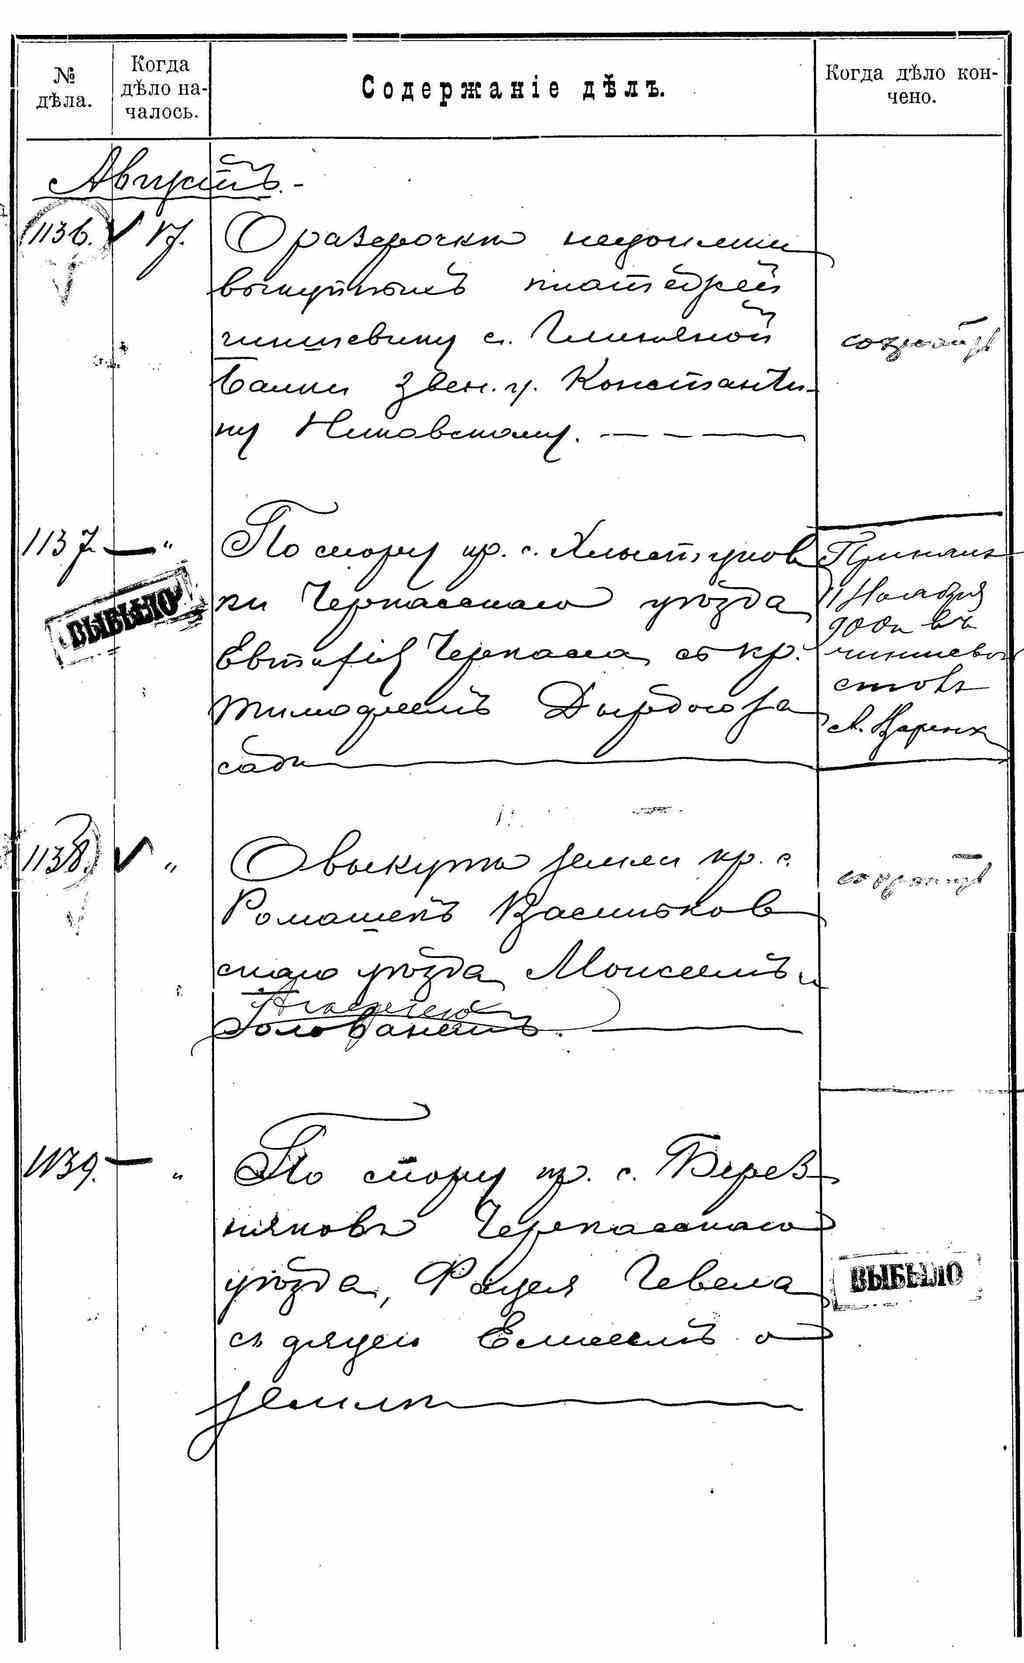 № дѣла.
Когда дѣло на-
чалось.
Содержаніе дѣлъ.
Когда дѣло кон-
чено.
Августъ.-
1136. 17. О разсрочкѣ недоимки
выкупныхъ платежей
чиншевику с. Глиняной
Балки Звен. у. Константи-
ну Никовскому.
сохранить
1137 — " По спору кр. с. Хлыстунов
ки Черкасскаго уѣзда
Евтафія Черкаса съ кр.
Тимофеемъ
сада
ВЫБЫЛО
Принялъ
11 Ноября
900 г. въ
чиншевой
столъ
1138. " О выкупѣ земли кр. с.
Ромашекъ Васильков
скаго уѣзда Моисеемъ и
Алексеемъ
Голованемъ.
сохранить
1139. — " По спору кр. с. Берез
няковъ Черкасскаго
уѣзда, Фадея Гевела
съ дядею Елисеемъ о
землѣ
ВЫБЫЛО